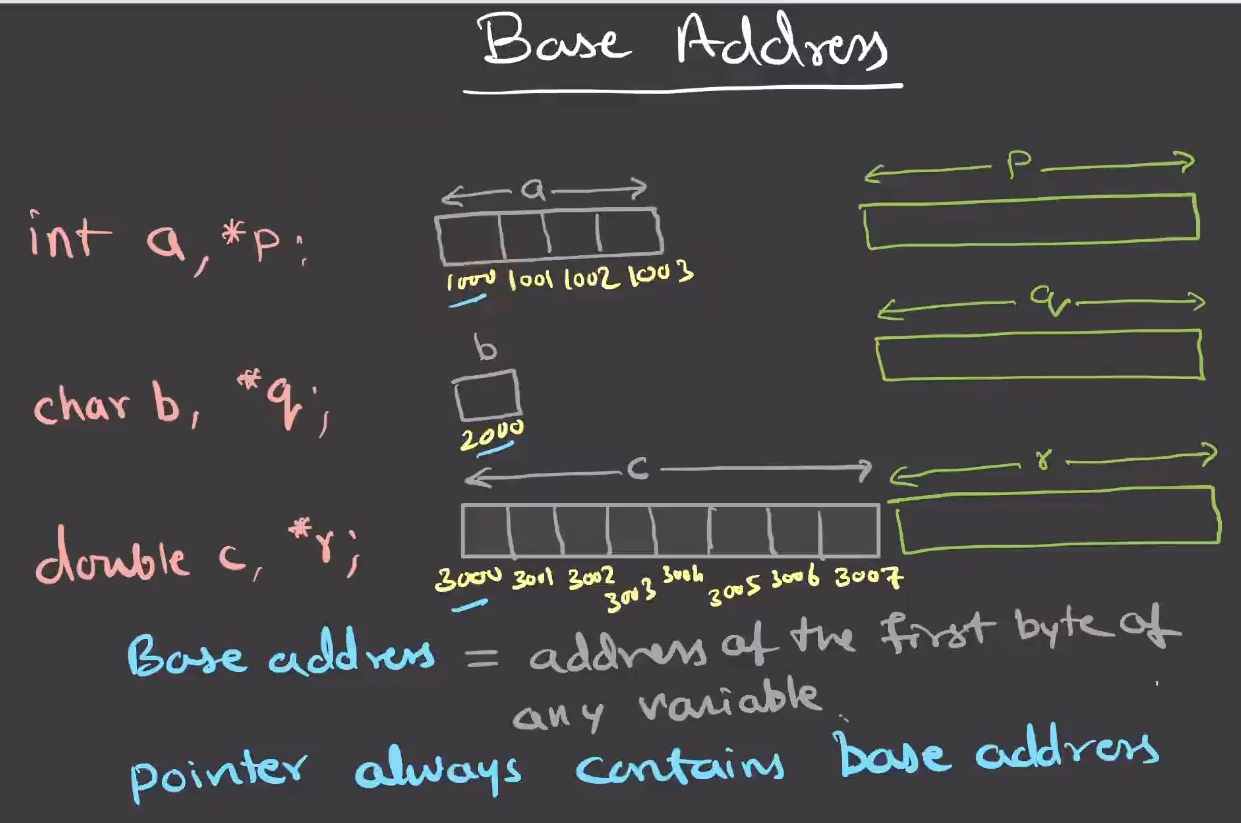 Base Address
a
P
int a, *p;
1000 1001 1002 1003
q
b
char b, *q;
2000
c
r
double c, *r;
3000 3001 3002 3003 3004 3005 3006 3007
Base address = address of the first byte of
any variable.
pointer always contains base address